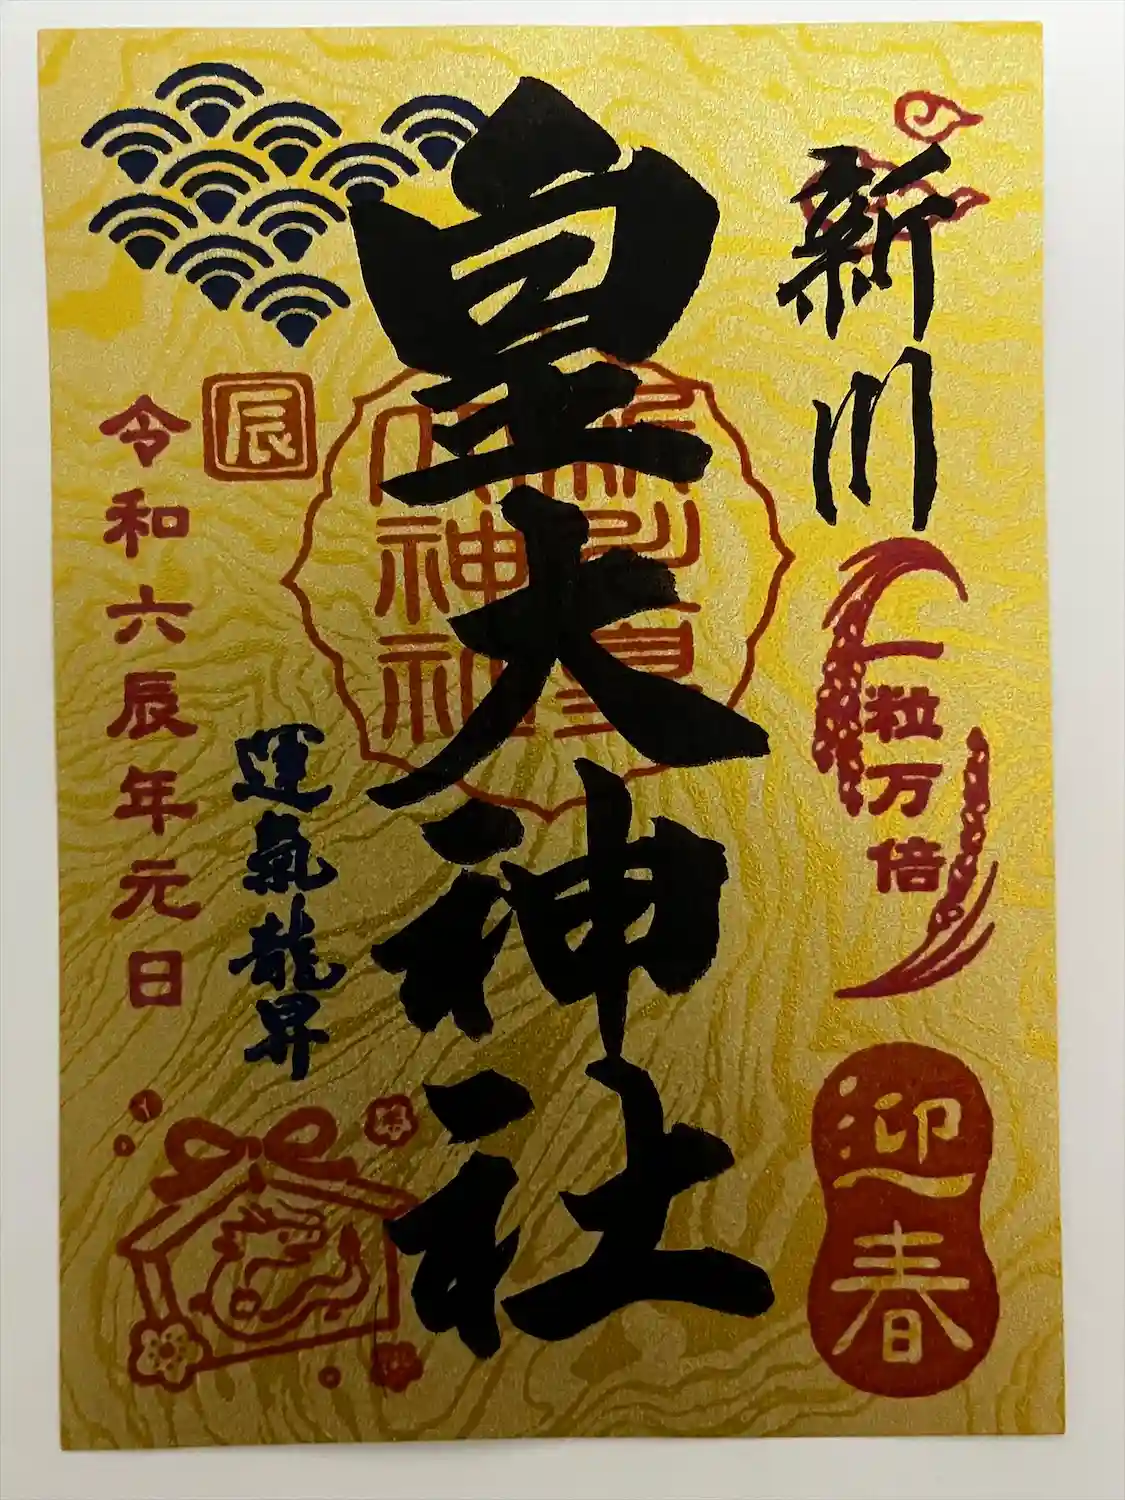 新川
一粒万倍
迎春
皇大神社
新川皇大神社
辰
運氣龍昇
令和六辰年元日